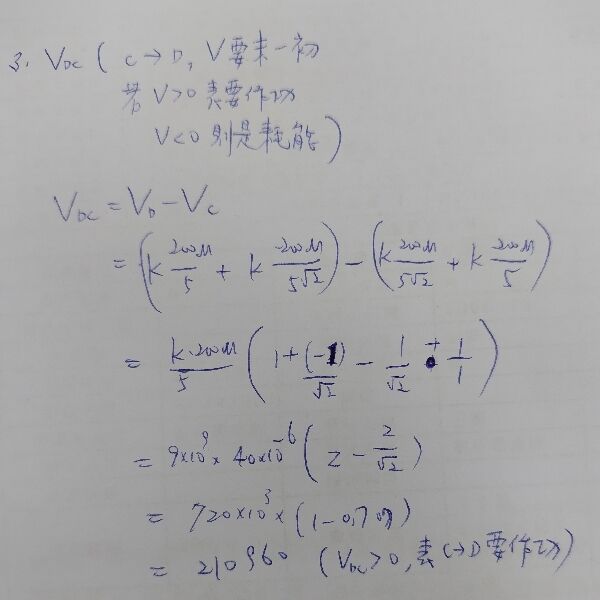 3. V_DC ( C→D, V要末-初
若 V>0 表要作功
V<0 則是耗能)
V_DC = V_D - V_C
= (k 200μ/5 + k -200μ/5√2) - (k 200μ/5√2 + k -200μ/5)
= k·200μ/5 (1 + (-1)/√2 - 1/√2 + 1/1)
= 9×10^9 × 40×10^-6 (2 - 2/√2)
= 720×10^3 × (1-0.707)
= 210960 (V_DC>0, 表C→D要作功)